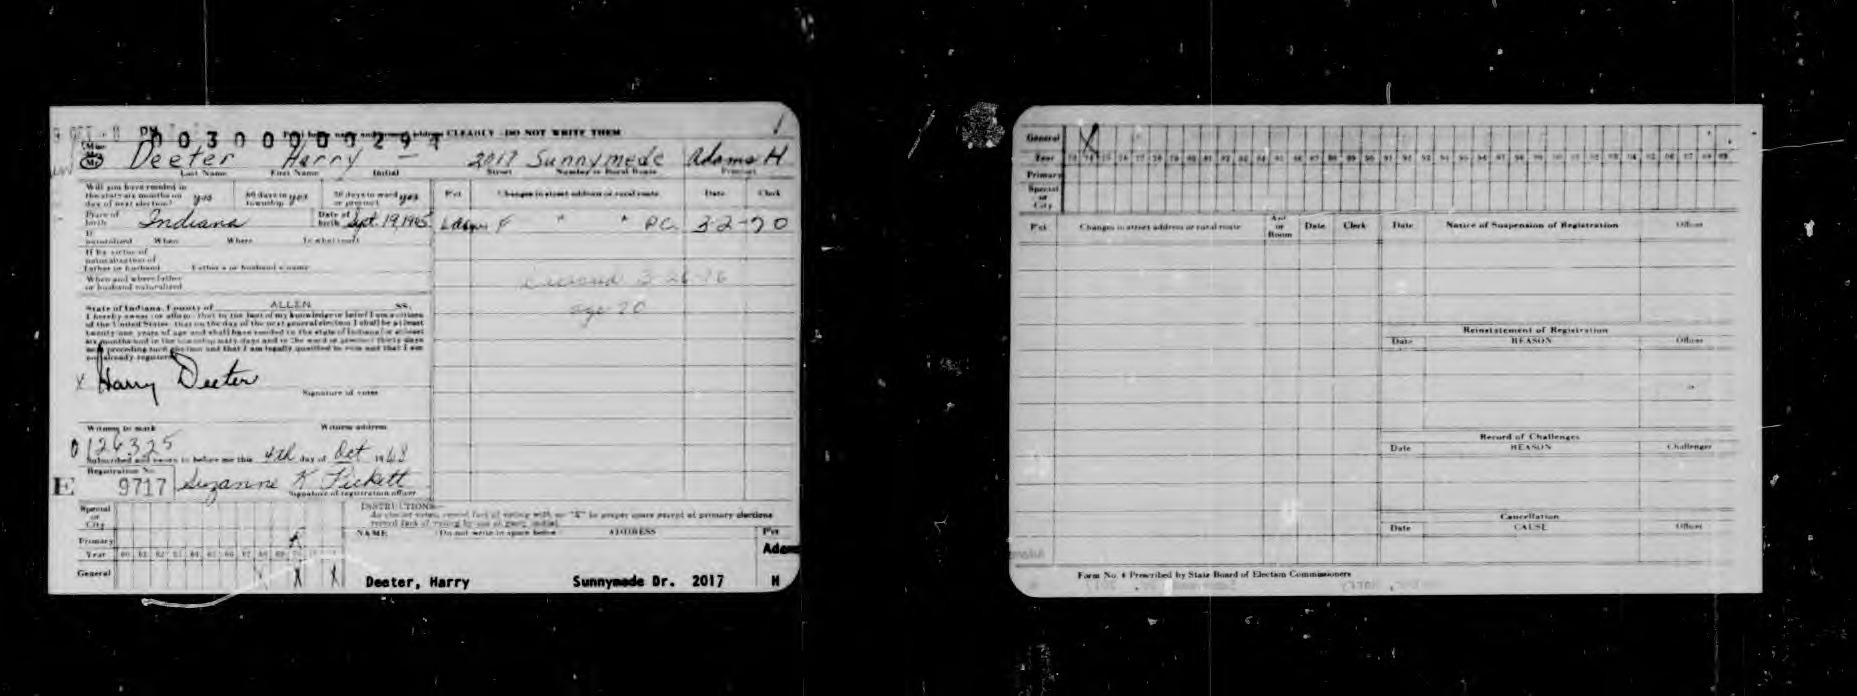 9 OCT PM
0 0 3 0 0 0 0 0 2 9
CLEARLY DO NOT WRITE THEM
Mr Deeter Harry - 2017 Sunnymede Adams H
Last Name First Name Initial Street Number or Rural Route Precinct
Will you have resided in the state six months on day of next election? yes 60 days in township yes 30 days in ward or precinct yes
Pct Changes in street address or rural route Date Clerk
Place of birth Indiana Date of birth Sept. 19, 1905
Adams F " " P.C. 3-2-70
If naturalized When Where In what court
If by virtue of naturalization of father or husband Father's or husband's name
When and where father or husband naturalized
deceased 3-26-76
age 70
State of Indiana, County of ALLEN SS.
I hereby swear (or affirm) that to the best of my knowledge or belief I am a citizen
of the United States, that on the day of the next general election I shall be at least
twenty-one years of age and shall have resided in the state of Indiana for at least
six months and in the township sixty days and in the ward or precinct thirty days
next preceding such election and that I am legally qualified to vote and that I am
not already registered
X Harry Deeter
Signature of voter
Witness to mark Witness address
0 126325
Subscribed and sworn to before me this 4th day of Oct 1968
Registration No.
E 9717 Suzanne K Pickett
Signature of registration officer
INSTRUCTIONS—
As elector votes, record fact of voting with an "X" in proper space except at primary elections
record fact of voting by use of party initial
Special or City
Primary
Year 60 61 62 63 64 65 66 67 68 69 70
General X X X
NAME (Do not write in space below) ADDRESS Pct
Adams
Deeter, Harry Sunnymede Dr. 2017 H
General X
Year
Primary
Special or City
Pct Changes in street address or rural route Apt or Room Date Clerk Date Notice of Suspension of Registration Officer
Reinstatement of Registration
Date REASON Officer
Record of Challenges
Date REASON Challenger
Cancellation
Date CAUSE Officer
Form No. 4 Prescribed by State Board of Election Commissioners